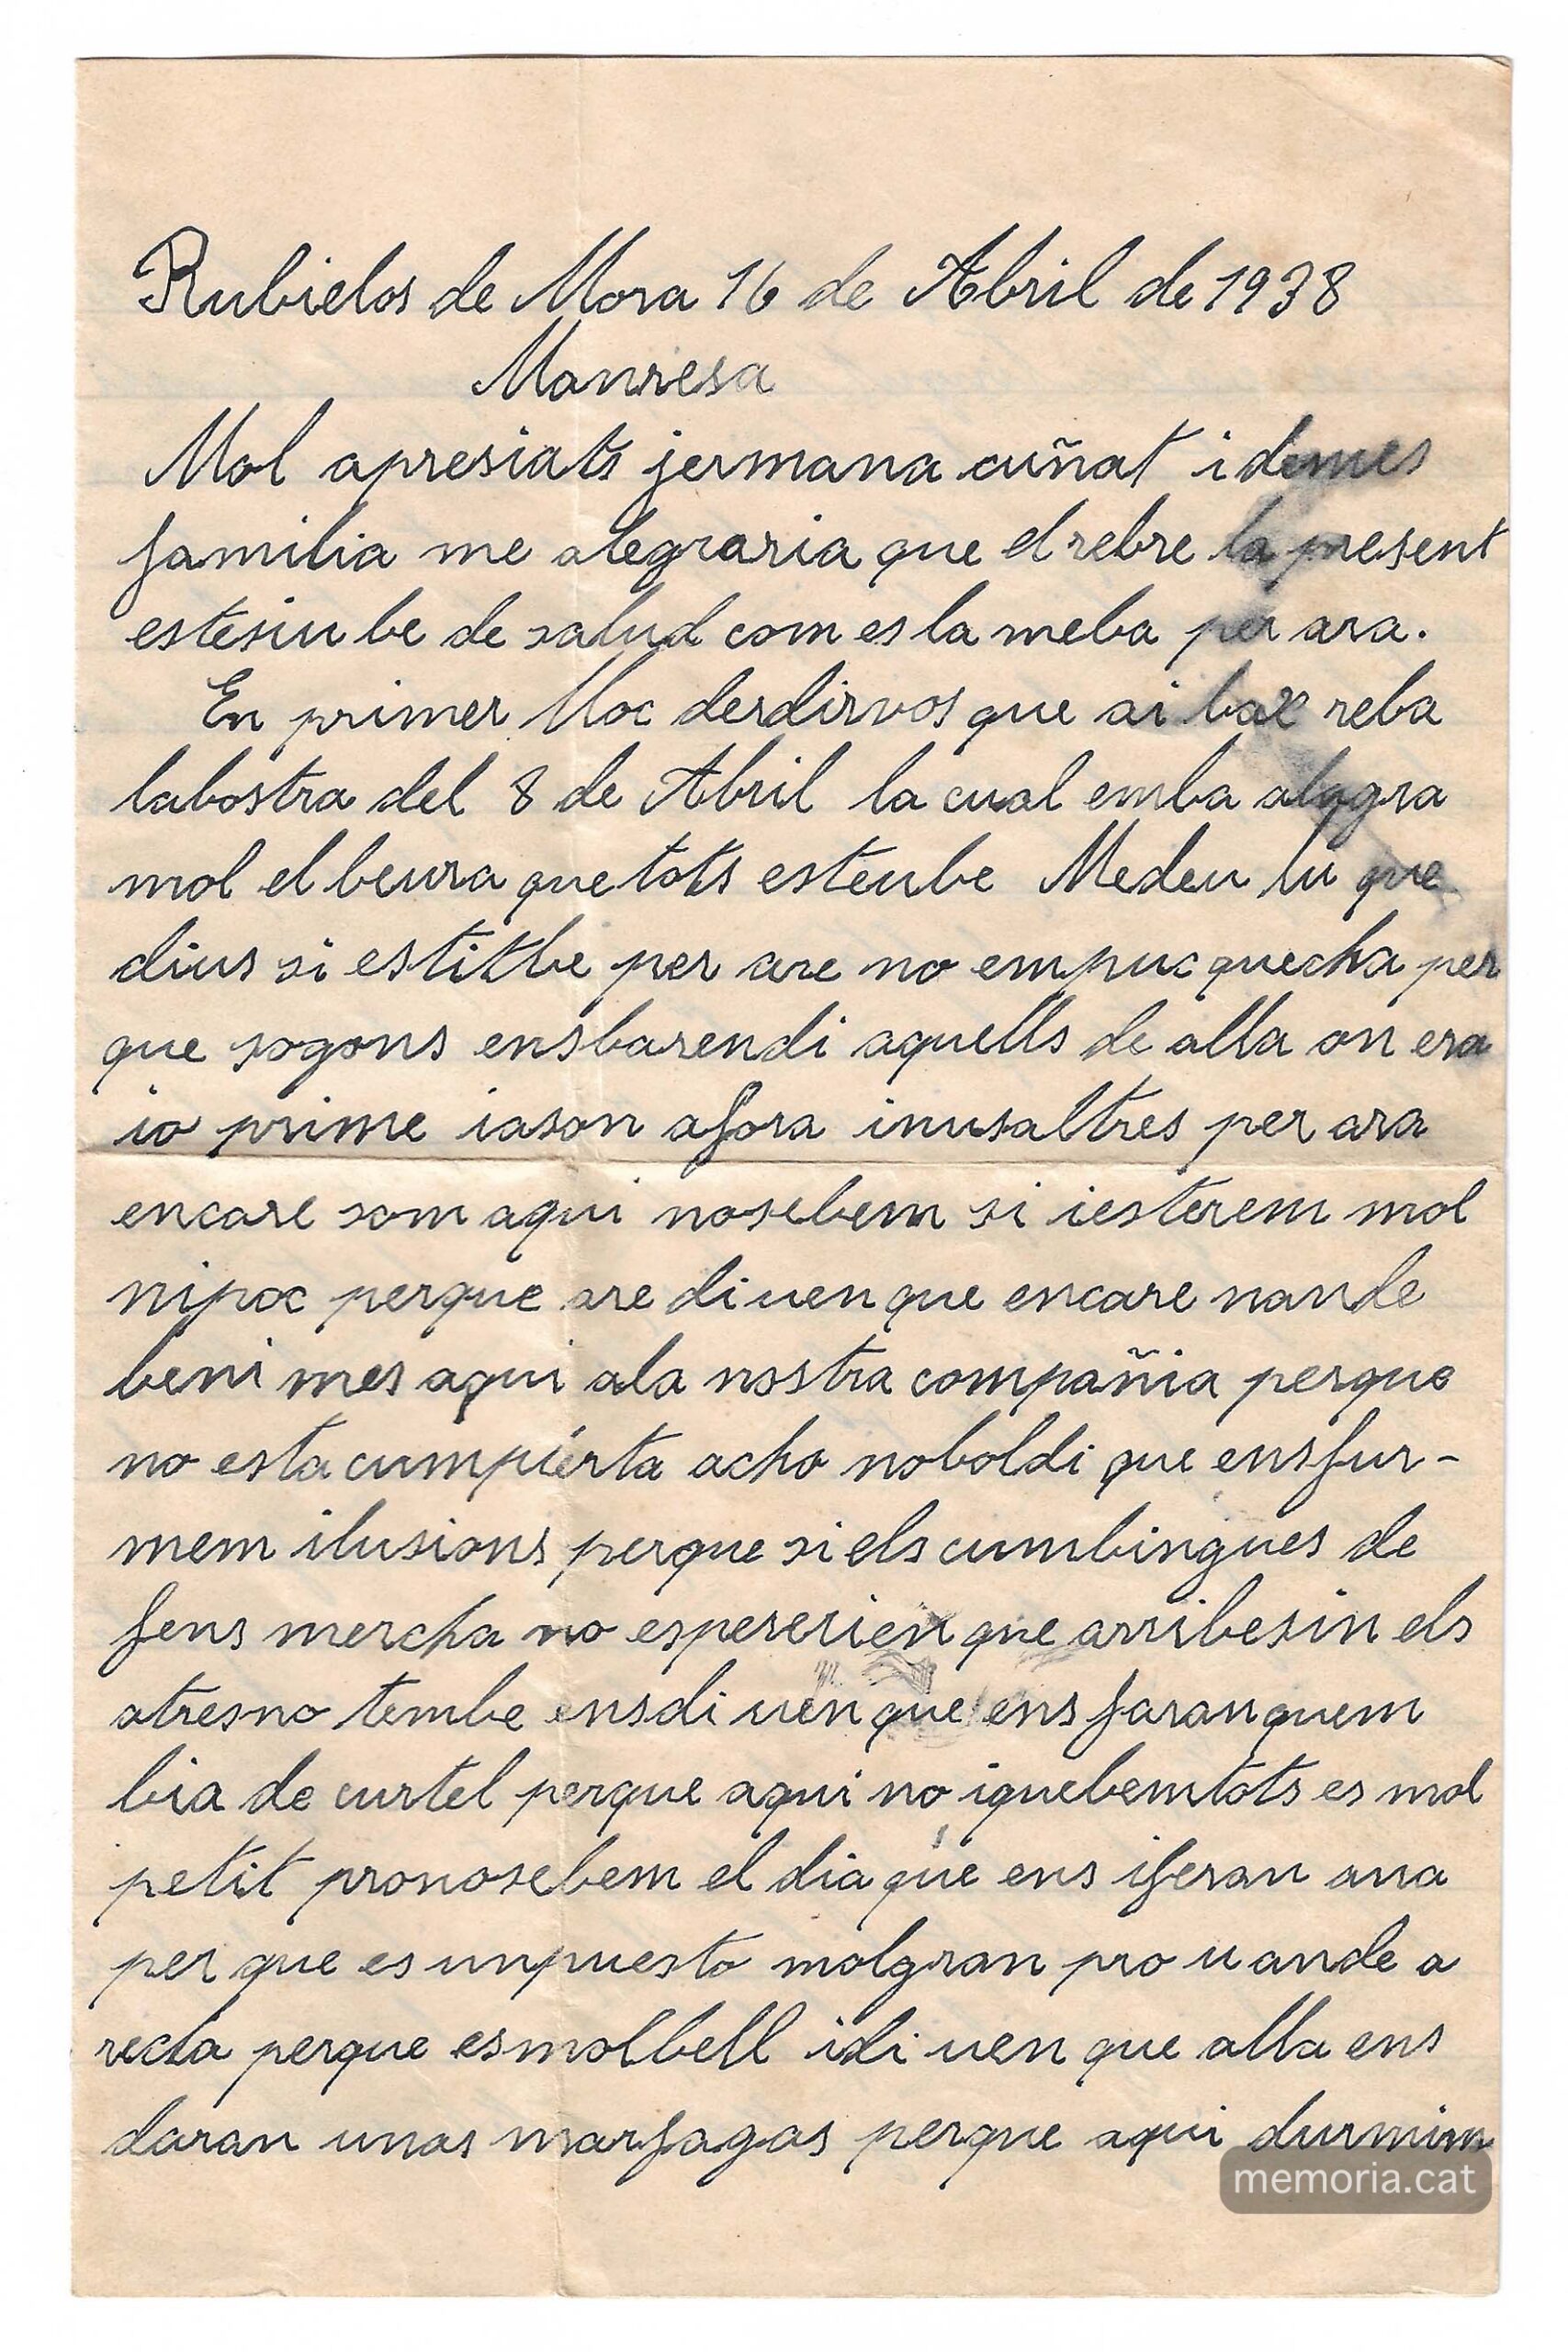 Rubielos de Mora 16 de Abril de 1938
Manresa
Mol apresiats jermana cuñat i demes
familia me alegraria que el rebre la present
estesiu be de salud com es la meba per ara.
En primer lloc derdirvos que ai bax reba
labostra del 8 de Abril la cual emba alegra
mol el beura que tots esteube Medeu lu que
dius si estitbe per are no em puc quecha per
que sogons ensbarendi aquells de alla on era
io prime iason afora inusaltres per ara
encare som aqui nosebem si iesterem mol
nipoc perque are diuen que encare nande
beni mes aqui ala nostra compañia perque
no esta cumplerta acho noboldi que ensfur-
mem ilusions perque si els cumbingues de
fens mercha no espererien que arribesin els
atresno tembe ensdiuen que ens faran quem
bia de curtel perque aqui no iquebemtots es mol
petit pronosebem el dia que ens iferan ana
per que es unpuesto molgran pro u ande a
recla perque esmolbell idiuen que alla ens
daran unas marfagas perque aqui durmim
memoria.cat